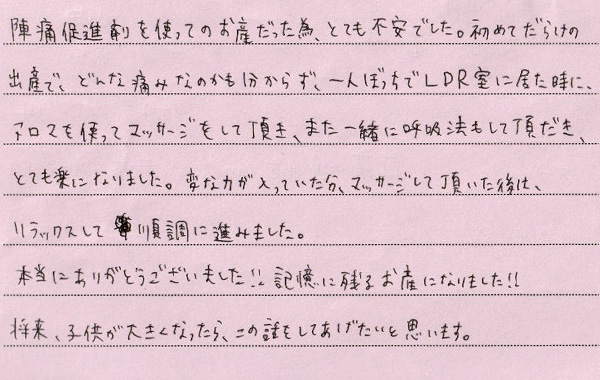 陣痛促進剤を使ってのお産だった為、とても不安でした。初めてだらけの
出産で、どんな痛みなのかも分からず、一人ぼっちでLDR室に居た時に、
アロマを使ってマッサージをして頂き、また一緒に呼吸法もして頂だき、
とても楽になりました。変な力が入っていた分、マッサージして頂いた後は、
リラックスして順調に進みました。
本当にありがとうございました!! 記憶に残るお産になりました!!
将来、子供が大きくなったら、この話をしてあげたいと思います。